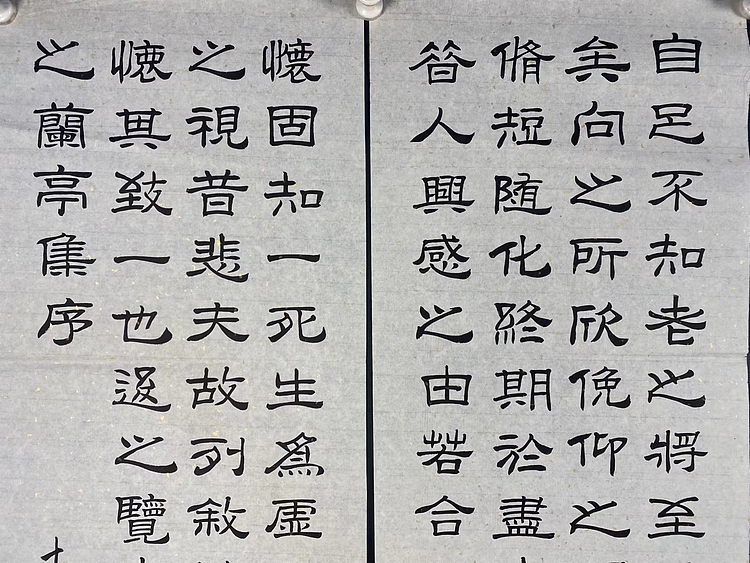 自足不知老之將至
矣向之所欣俛仰之
脩短随化終期於盡
昔人興感之由若合
懷固知一死生爲虛
之視昔悲夫故列敘
懷其致一也後之覽
之蘭亭集序